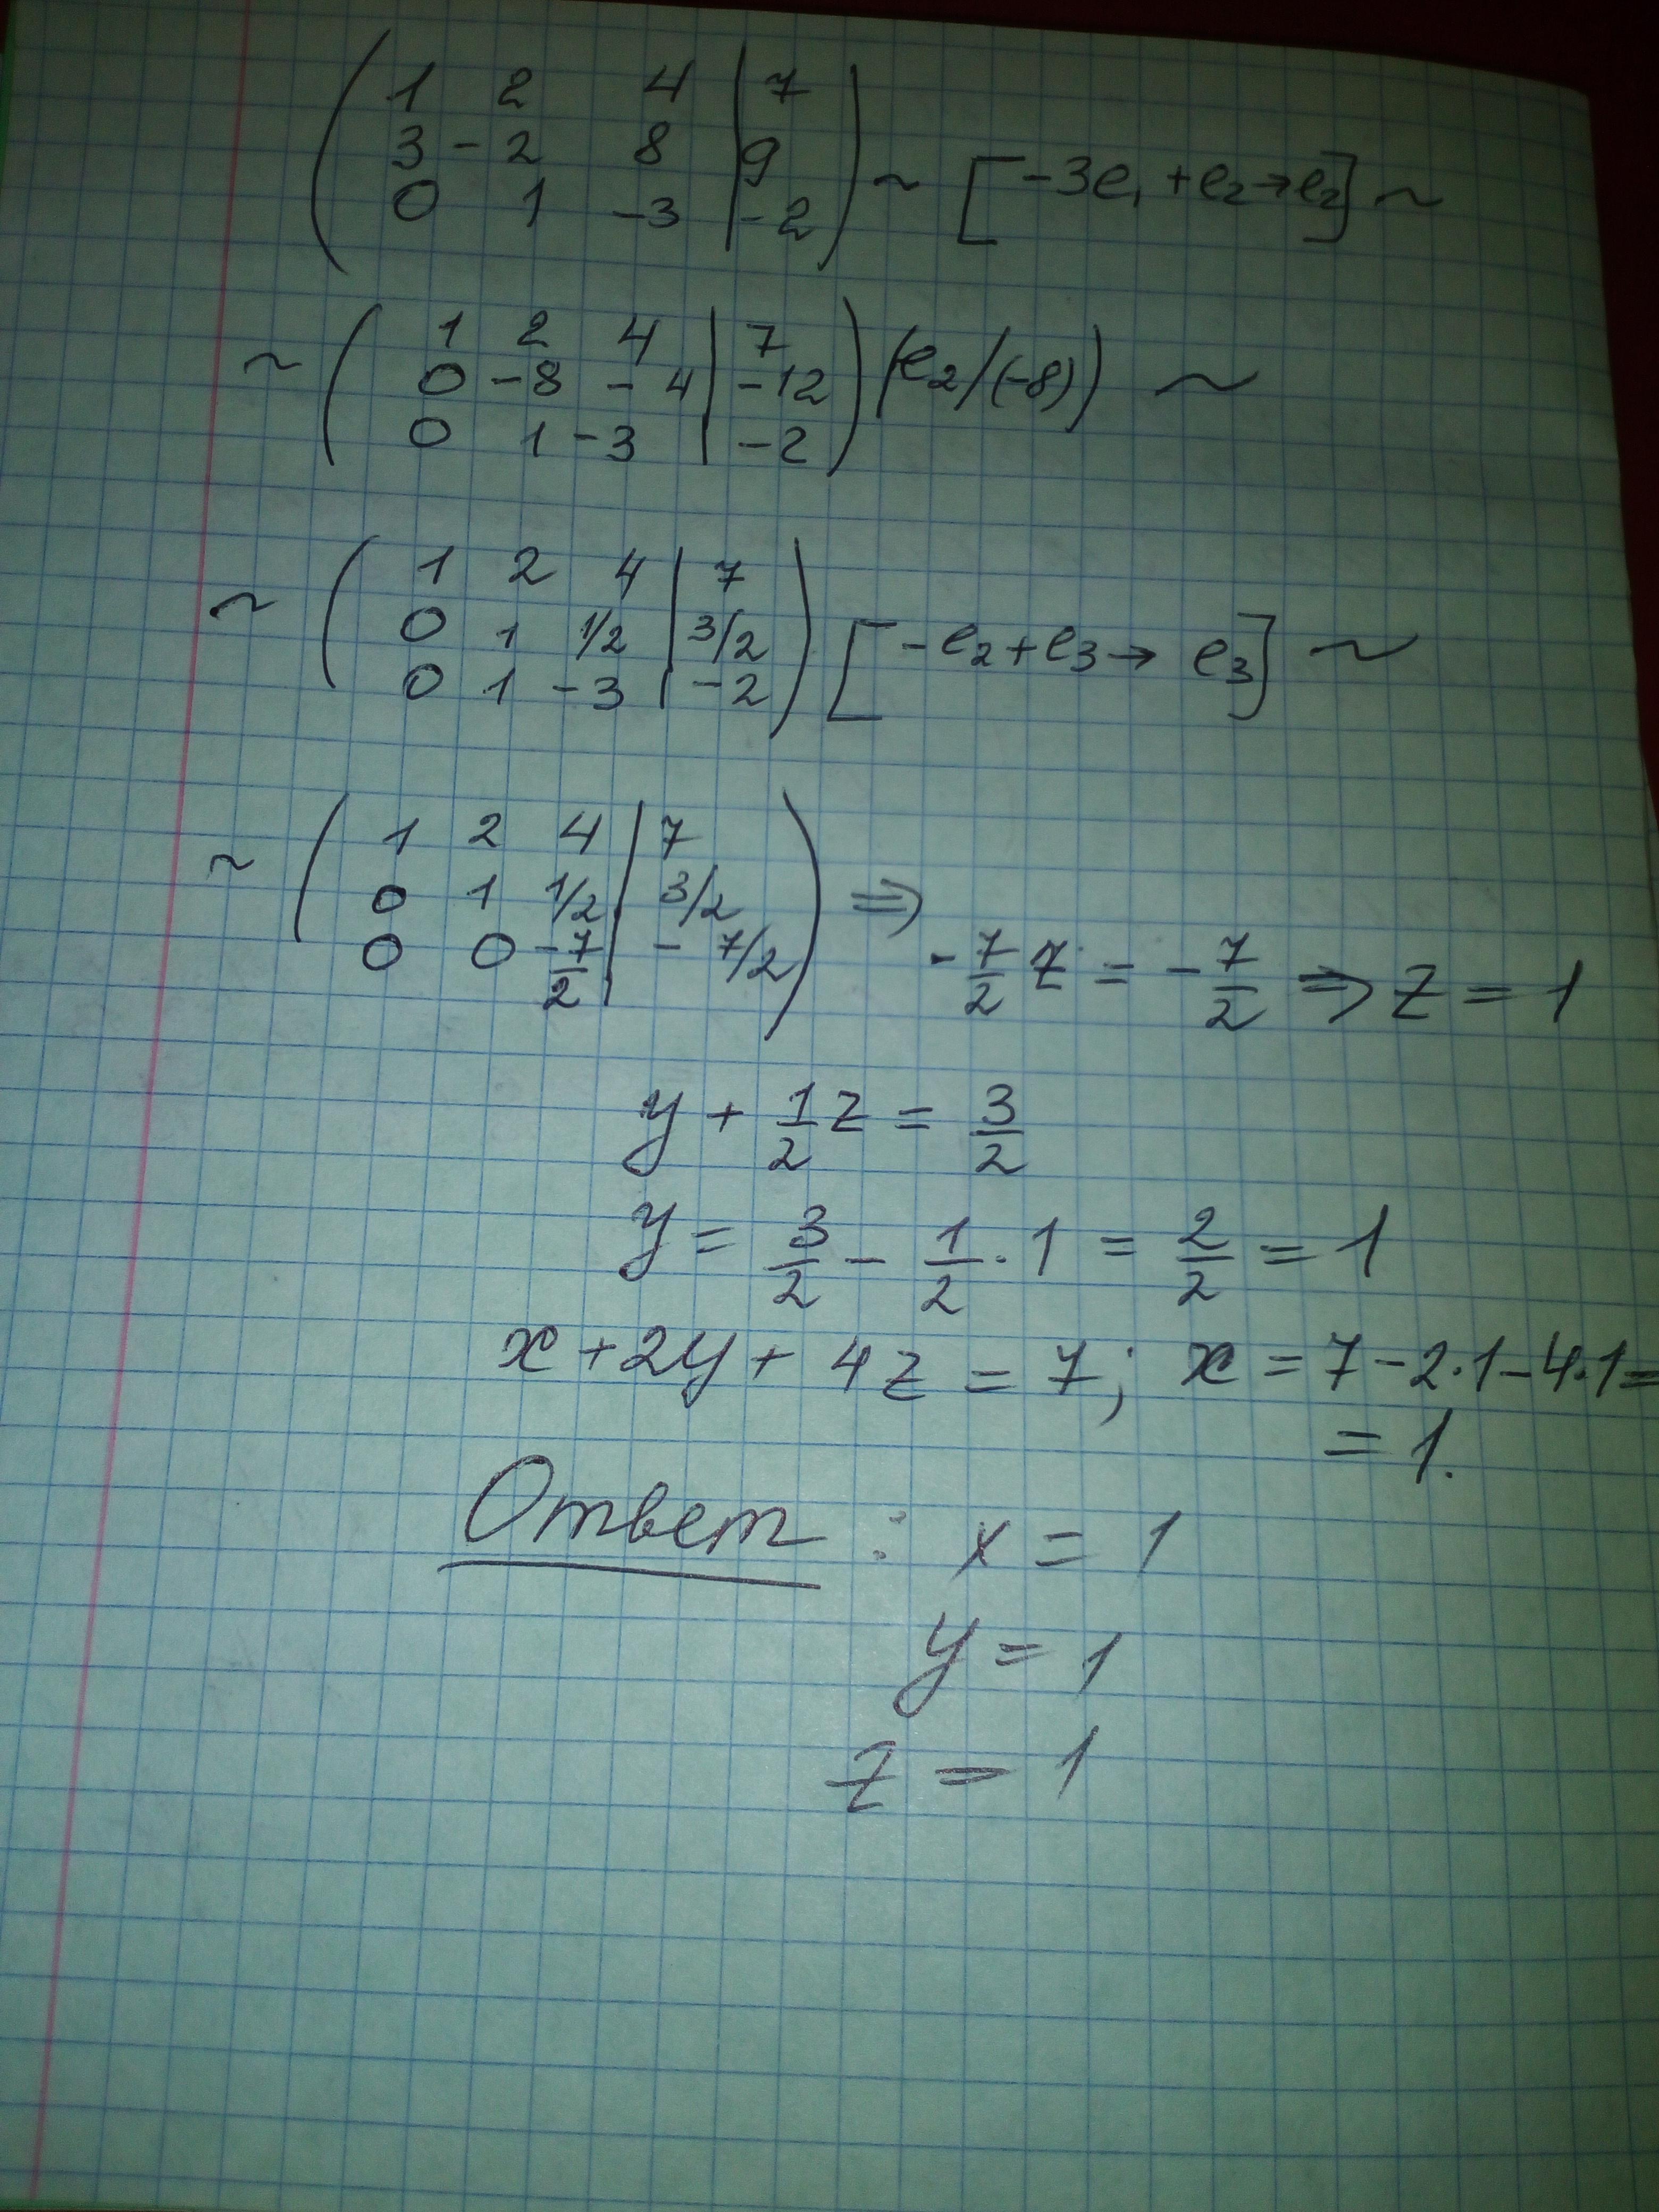 ( 1 2 4 | 7 )
( 3 -2 8 | 9 ) ~ [-3e₁ + e₂ → e₂] ~
( 0 1 -3 | -2 )
( 1 2 4 | 7 )
~ ( 0 -8 -4 | -12 ) (e₂/(-8)) ~
( 0 1 -3 | -2 )
( 1 2 4 | 7 )
~ ( 0 1 1/2 | 3/2 ) [-e₂ + e₃ → e₃] ~
( 0 1 -3 | -2 )
( 1 2 4 | 7 )
~ ( 0 1 1/2 | 3/2 ) ⇒
( 0 0 -7/2 | -7/2 ) -7/2 z = -7/2 ⇒ z = 1
y + 1/2 z = 3/2
y = 3/2 - 1/2 · 1 = 2/2 = 1
x + 2y + 4z = 7; x = 7 - 2·1 - 4·1 =
= 1.
Ответ : x = 1
y = 1
z = 1